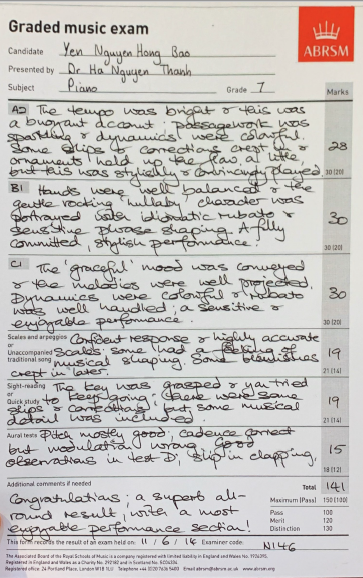 Graded music exam
ABRSM
Candidate Yen Nguyen Hong Bao
Presented by Dr Ha Nguyen Thanh
Subject Piano Grade 7
Marks
A2 The tempo was bright & this was
a buoyant account: passagework was
sparkling & dynamics were colourful.
Some slips & corrections crept in &
ornaments held up the flow a little,
but this was stylishly & convincingly played.
28
30 (20)
B1 Hands were well balanced & the
gentle rocking 'lullaby' character was
portrayed with idiomatic rubato &
sensitive phrase shaping. A fully
committed, stylish performance.
30
30 (20)
C1 The 'graceful' mood was conveyed
& the melodies were well projected.
Dynamics were colourful & rubato
was well handled; a sensitive &
enjoyable performance.
30
30 (20)
Scales and arpeggios
or
Unaccompanied
traditional song
Confident response & highly accurate
scales; some had a feeling of
musical shaping. Some blemishes
crept in later.
19
21 (14)
Sight-reading
or
Quick study
The key was grasped & you tried
to keep going; there were some
slips & corrections but some musical
detail was included.
19
21 (14)
Aural tests Pitch mostly good; cadence correct
but modulation wrong. Good
observations in test D; slip in clapping.
15
18 (12)
Additional comments if needed
Congratulations: a superb all-
round result, with a most
enjoyable performance section!
Total 141
Maximum (Pass) 150 (100)
Pass 100
Merit 120
Distinction 130
This form records the result of an exam held on: 11 / 6 / 16 Examiner code: N146
The Associated Board of the Royal Schools of Music is a company registered with limited liability in England and Wales No. 1926395.
Registered in England and Wales as a Charity No. 292182 and in Scotland No. SC04
Registered office: 24 Portland Place, London W1B 1LU Telephone +44 (0)20 7636 5400 Email abrsm@abrsm.ac.uk www.abrsm.org